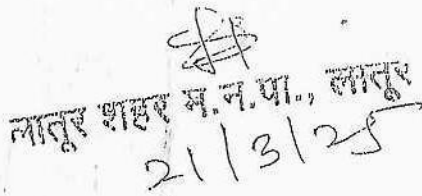 लातूर शहर म.न.पा., लातूर
21/3/25